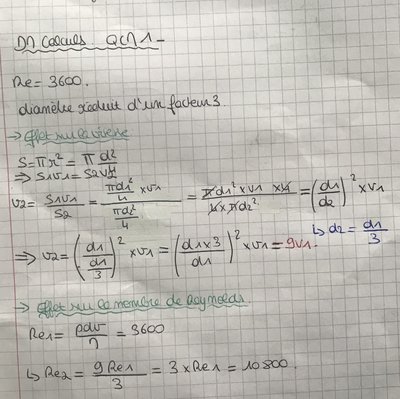 DM Calculs. QCM 1 -
Re = 3600.
diamètre réduit d'un facteur 3.
→ effet sur la vitesse
S = πr² = π d²/4
⇒ S1v1 = S2v2
v2 = S1v1/S2 = (πd1²/4 × v1)/(πd2²/4) = (πd1² × v1 × 4)/(4 × πd2²) = (d1/d2)² × v1
↳ d2 = d1/3
⇒ v2 = (d1/(d1/3))² × v1 = (d1×3/d1)² × v1 = 9v1.
→ effet sur le nombre de Reynolds
Re1 = ρdv/η = 3600
↳ Re2 = 9Re1/3 = 3 × Re1 = 10800.